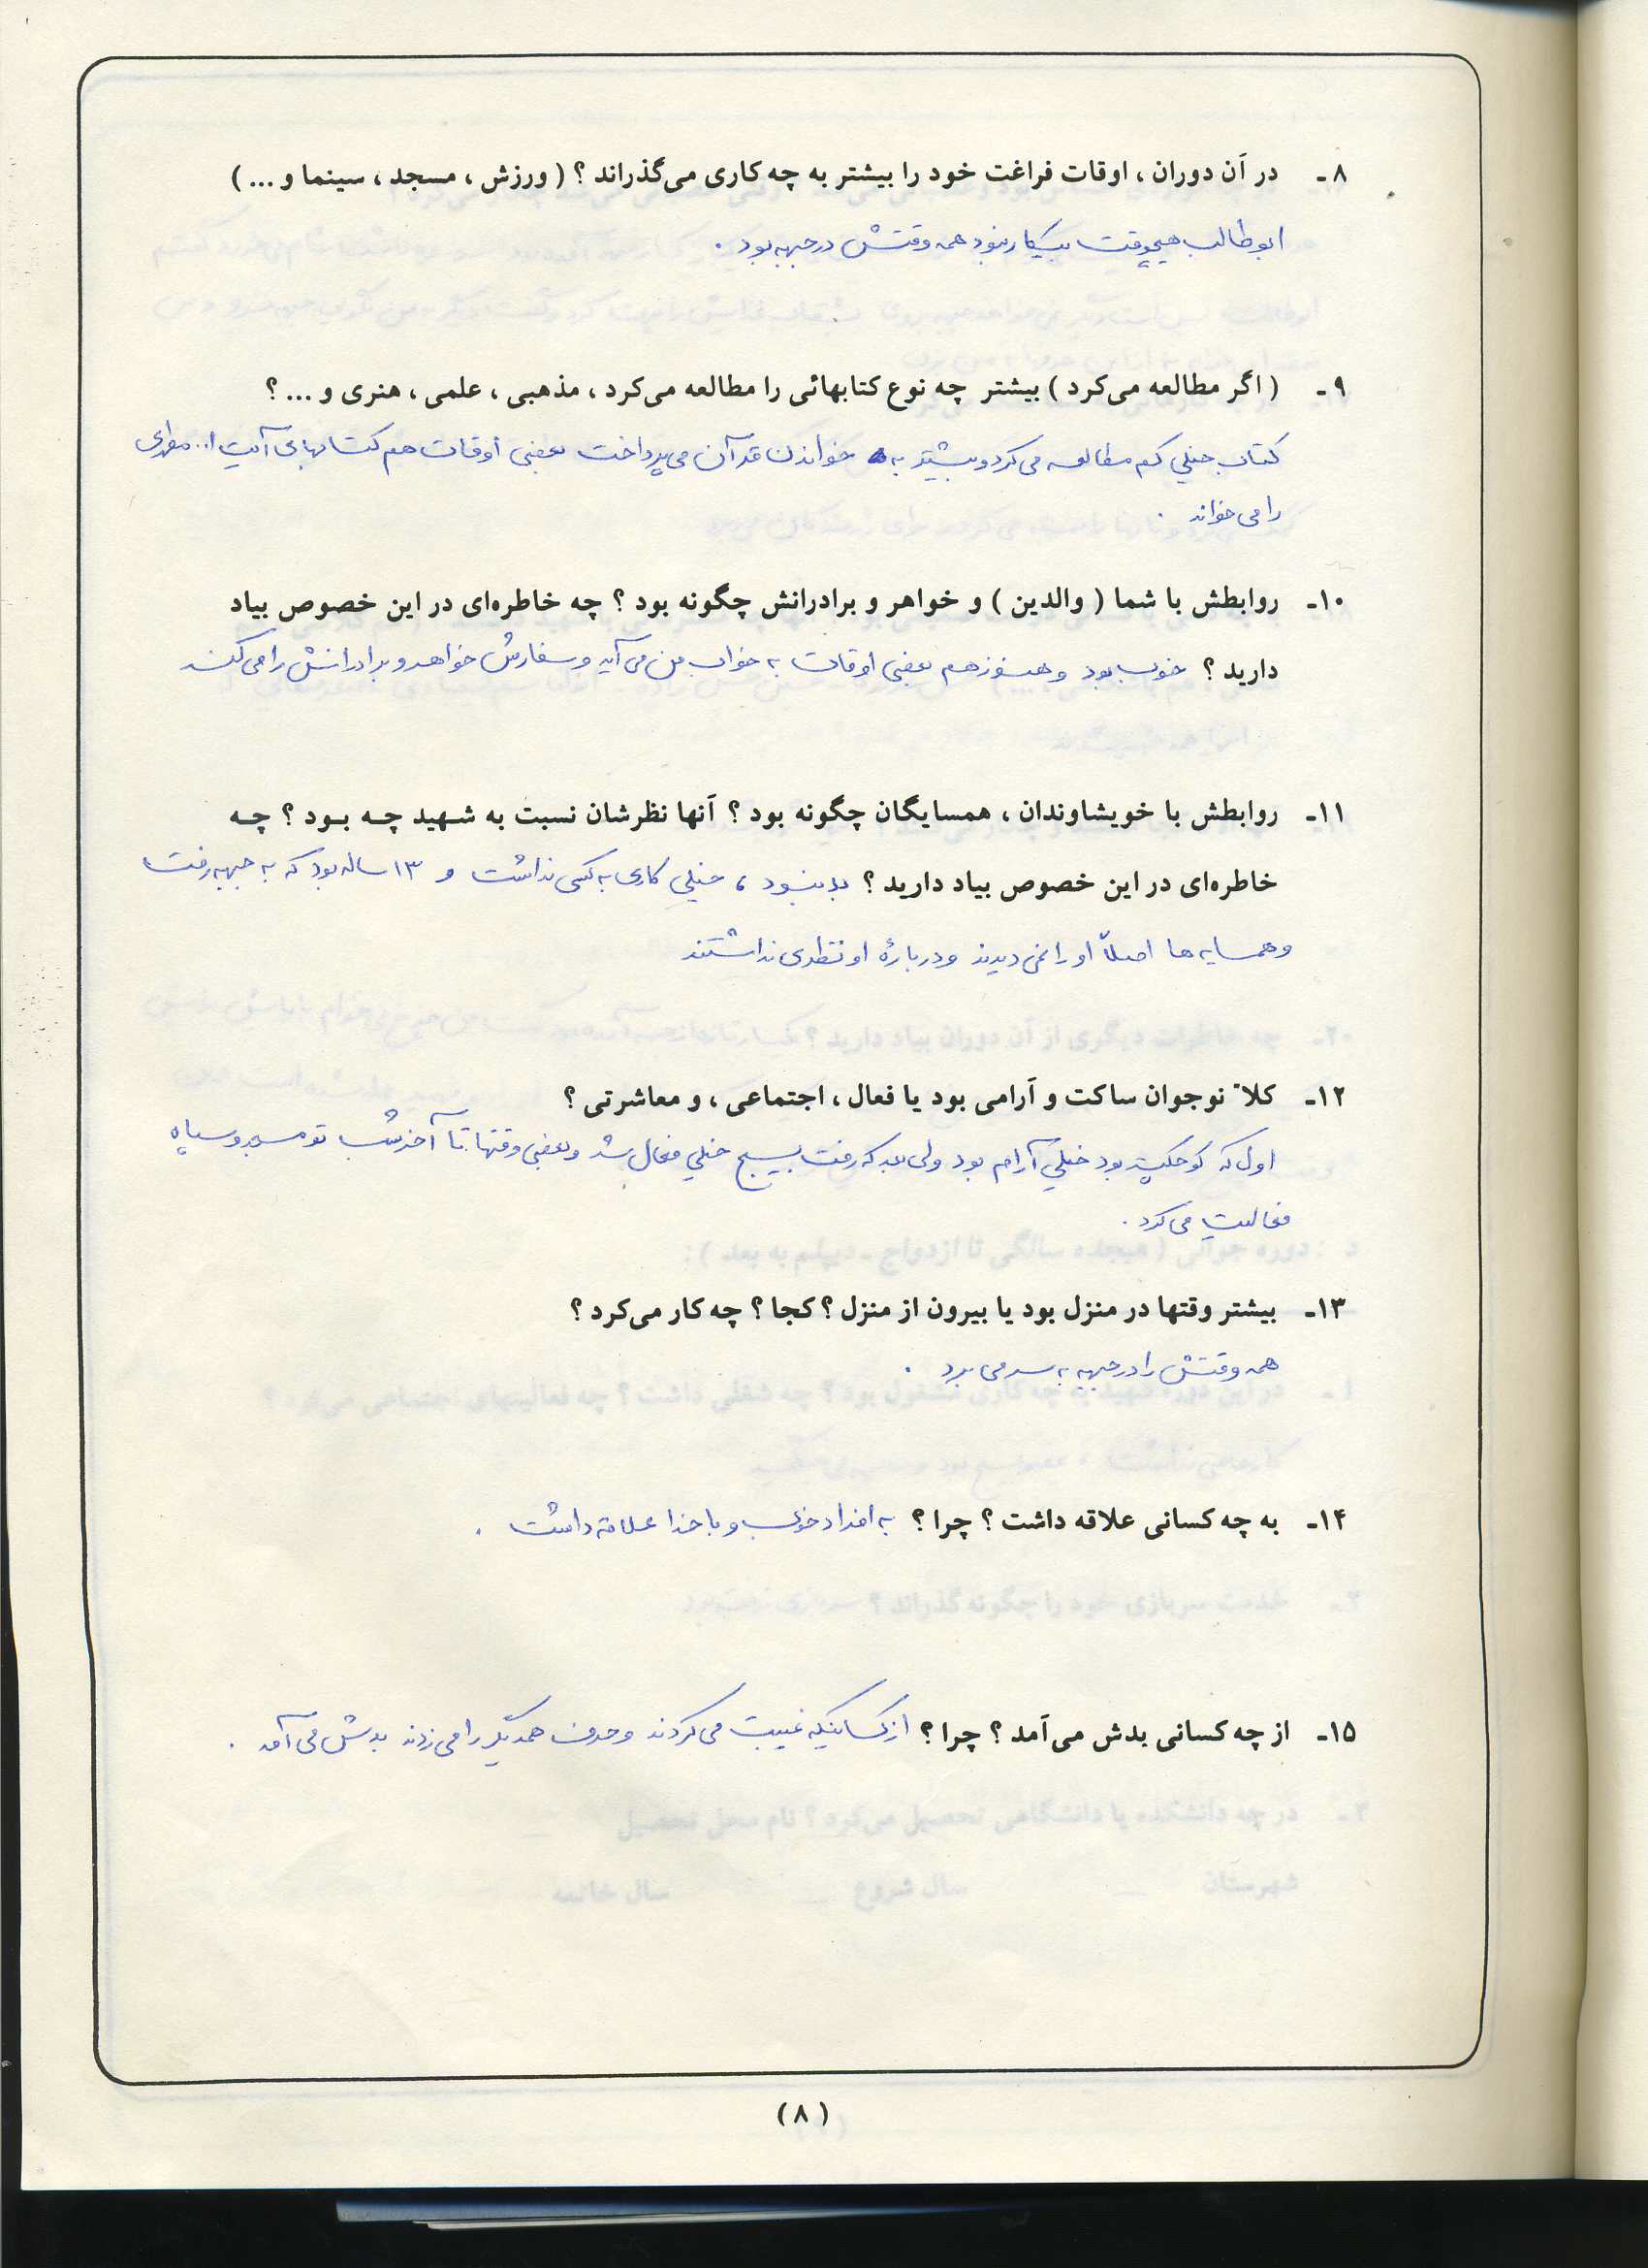 ۸ـ در آن دوران ، اوقات فراغت خود را بیشتر به چه کاری می‌گذراند ؟ ( ورزش ، مسجد ، سینما و ... )
ابوطالب هیچوقت بیکار نبود همه وقتش در جبهه بود .
۹ـ ( اگر مطالعه می‌کرد ) بیشتر چه نوع کتابهائی را مطالعه می‌کرد ، مذهبی ، علمی ، هنری و ... ؟
کتاب خیلی کم مطالعه می کرد و بیشتر به خواندن قرآن می پرداخت بعضی اوقات هم کتابهای آیت ا.. مطهری
را می خواند .
۱۰ـ روابطش با شما ( والدین ) و خواهر و برادرانش چگونه بود ؟ چه خاطره‌ای در این خصوص بیاد
دارید ؟ خوب بود و هنوز هم بعضی اوقات به خواب من می آید و سفارش خواهر و برادرانش را می کند
۱۱ـ روابطش با خویشاوندان ، همسایگان چگونه بود ؟ آنها نظرشان نسبت به شهید چه بود ؟ چه
خاطره‌ای در این خصوص بیاد دارید ؟ بد نبود ، خیلی کاری به کسی نداشت و ۱۳ ساله بود که به جبهه رفت
و همسایه ها اصلاً او را نمی دیدند و دربارهٔ او نظری نداشتند
۱۲ـ کلاً نوجوان ساکت و آرامی بود یا فعال ، اجتماعی ، و معاشرتی ؟
اول که کوچک بود خیلی آرام بود ولی بعد که رفت بسیج خیلی فعال شد و بعضی وقتها تا آخر شب تو مسجد و سپاه
فعالیت می کرد .
۱۳ـ بیشتر وقتها در منزل بود یا بیرون از منزل ؟ کجا ؟ چه کار می‌کرد ؟
همه وقتش را در جبهه به سر می برد .
۱۴ـ به چه کسانی علاقه داشت ؟ چرا ؟ به افراد خوب و با خدا علاقه داشت .
۱۵ـ از چه کسانی بدش می‌آمد ؟ چرا ؟ از کسانیکه غیبت می کردند و حرف همدیگر را می زدند بدش می آمد .
(۸)